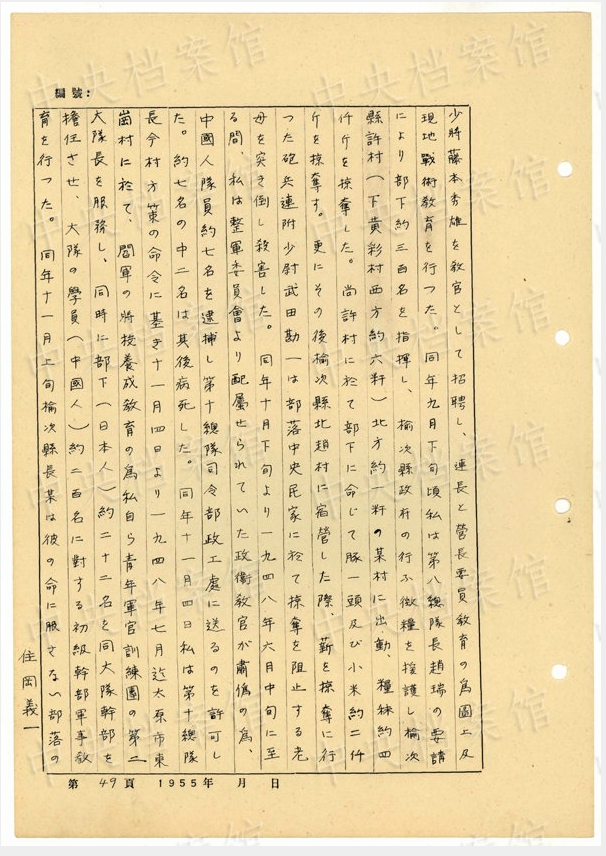 編號:
少將藤本秀雄を教官として招聘し、連長と營長要員教育の爲圖上及
現地戰術教育を行つた。同年九月下旬頃私は第八總隊長趙瑞の要請
により部下約三百名を指揮し、榆次縣政府の行ふ徴糧を援護し榆次
縣許村(下黄彩村西方約六粁)北方約一粁の某村に出動、糧秣約四
仟斤を掠奪した。尚許村に於て部下に命じて豚一頭及び小米約二仟
斤を掠奪す。更にその後榆次縣北趙村に宿營した際、薪を掠奪に行
つた砲兵連附少尉武田勘一は部落中央民家に於て掠奪を阻止する老
母を突き倒し殺害した。同年十月下旬より一九四八年六月中旬に至
る間、私は整軍委員會より配屬せられていた政衛教官が肅僞の爲、
中國人隊員約七名を逮捕し第十總隊司令部政工處に送るのを許可し
た。約七名の中二名は其後病死した。同年十一月四日私は第十總隊
長今村方策の命令に基き十一月四日より一九四八年七月迄太原市東
崗村に於て、閻軍の將校養成教育の爲私自ら青年軍官訓練團の第二
大隊長を服務し、同時に部下(日本人)約二十二名を同大隊幹部を
擔任させ、大隊の學員(中國人)約二百名に對する初級幹部軍事教
育を行つた。同年十一月上旬榆次縣長某は彼の命に服さない部落の
住岡義一
第 49 頁 1955年 月 日
中央档案馆